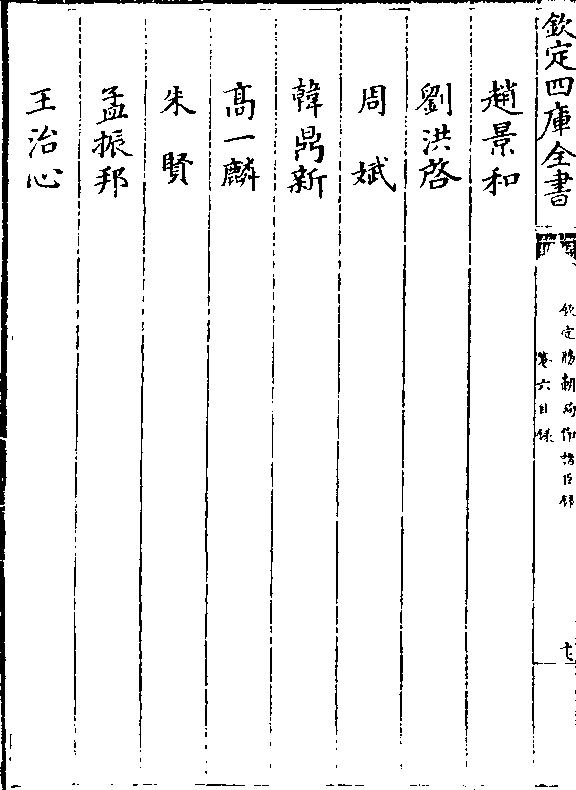 欽定四庫全書
欽定勝朝殉節諸臣錄
卷六目錄
趙景和
劉洪啓
周斌
韓鼎新
高一麟
朱賢
孟振邦
王治心